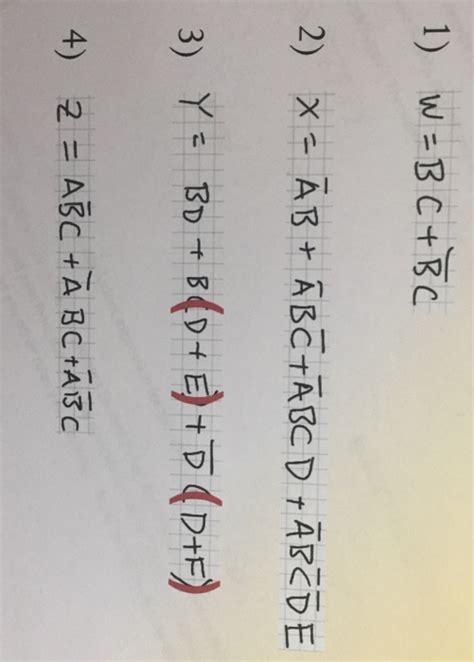 1) W = BC + B̅C
2) X = A̅B + A̅BC̅ + A̅BCD + A̅BC̅D̅E
3) Y = BD + B(D + E) + D̅(D+F)
4) Z = AB̅C + A̅BC + A̅B̅C